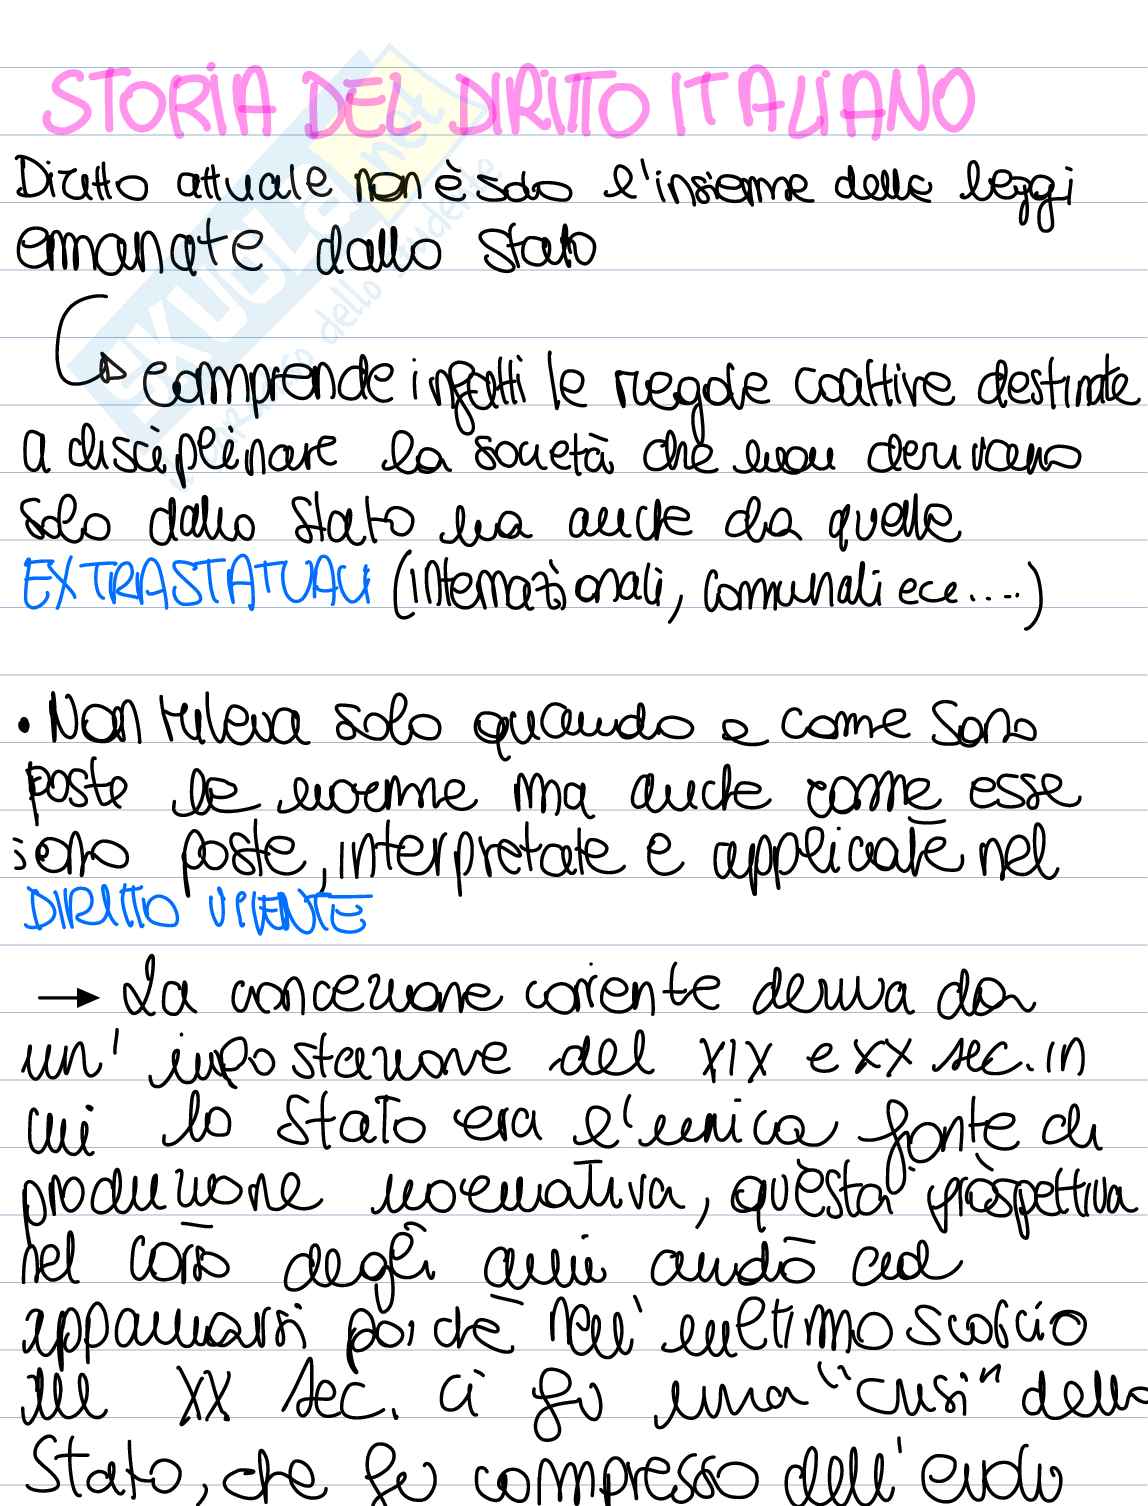 STORIA DEL DIRITTO ITALIANO
Diritto attuale non è solo l'insieme delle leggi
emanate dallo stato
comprende infatti le regole coattive destinate
a disciplinare la società che non derivano
solo dallo Stato ma anche da quelle
EXTRASTATUALI (internazionali, comunali ecc....)
• Non rileva solo quando e come sono
poste le norme ma anche come esse
sono poste, interpretate e applicate nel
DIRITTO VIVENTE
→ La concezione corrente deriva da
un' impostazione del XIX e XX sec. in
cui lo Stato era l'unica fonte di
produzione normativa, questa prospettiva
nel corso degli anni andò ad
appannarsi poichè nell'ultimo scorcio
del XX sec. ci fu una "crisi" dello
Stato, che fu compresso dell'
SKUOLA.net
dello studente